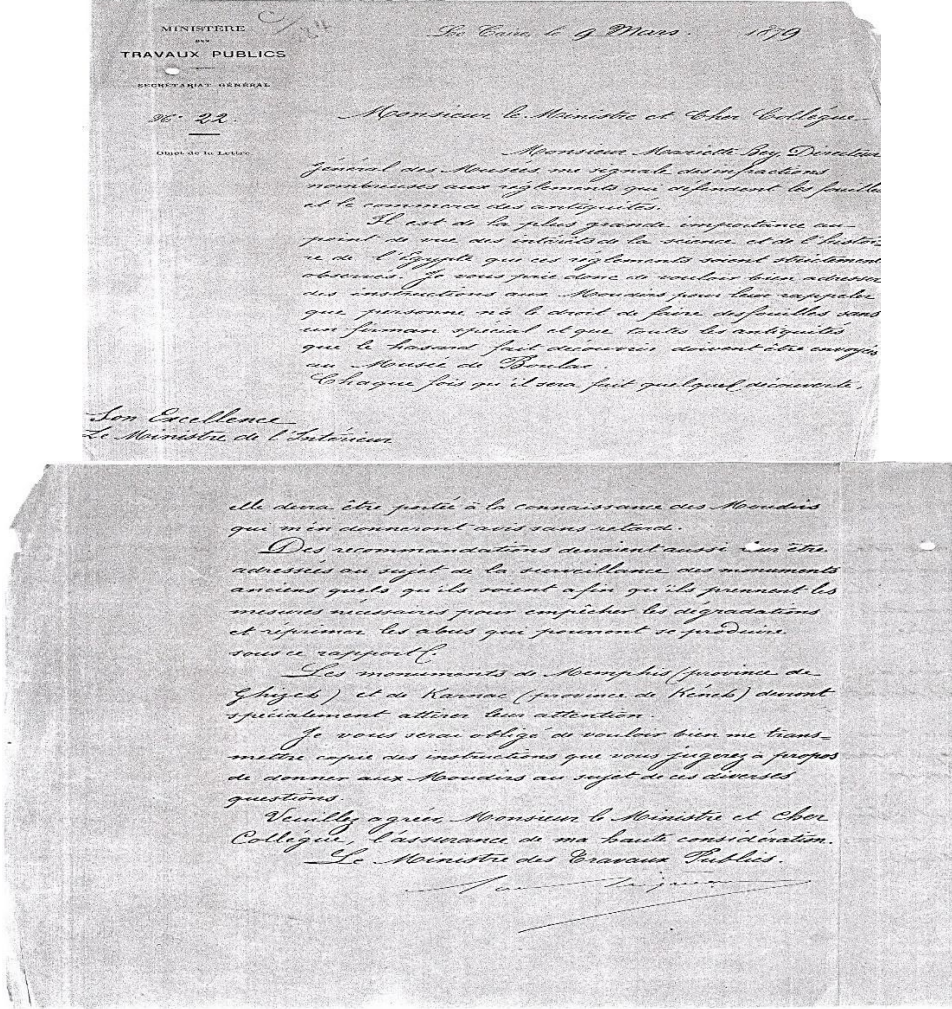 MINISTÈRE
DES
TRAVAUX PUBLICS
SECRÉTARIAT GÉNÉRAL
N° 22.
Objet de la Lettre
Le Caire, le 9 Mars. 1879
Monsieur le Ministre et Cher Collègue
Monsieur Mariette Bey, Directeur
Général des Musées, me signale des infractions
nombreuses aux règlements qui défendent les fouilles
et le commerce des antiquités.
Il est de la plus grande importance au
point de vue des intérêts de la science et de l'histoi-
re de l'Égypte que ces règlements soient strictement
observés. Je vous prie donc de vouloir bien adresser
des instructions aux Moudirs pour leur rappeler
que personne n'a le droit de faire des fouilles sans
un firman spécial et que toutes les antiquités
que le hasard fait découvrir doivent être envoyées
au Musée de Boulac.
Chaque fois qu'il sera fait quelque découverte,
Son Excellence
Le Ministre de l'Intérieur
elle devra être portée à la connaissance des Moudirs
qui m'en donneront avis sans retard.
Des recommandations devraient aussi leur être
adressées au sujet de la surveillance des monuments
anciens quels qu'ils soient afin qu'ils prennent les
mesures nécessaires pour empêcher les dégradations
et réprimer les abus qui pourront se produire
sous ce rapport.
Les monuments de Memphis (province de
Ghizeh) et de Karnac (province de Kéneh) devront
spécialement attirer leur attention.
Je vous serai obligé de vouloir bien me trans=
mettre copie des instructions que vous jugerez à propos
de donner aux Moudirs au sujet de ces diverses
questions.
Veuillez agréer, Monsieur le Ministre et Cher
Collègue, l'assurance de ma haute considération.
Le Ministre des Travaux Publics.